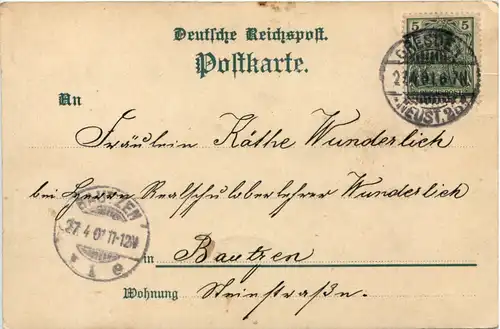 Deutsche Reichspost.
Postkarte.
5 5
DRESDEN
27.4.01.6-7V.
NEUST.
An
Fräulein Käthe Wunderlich
bei Herrn Realschuloberlehrer Wunderlich
BAUTZEN
27.4.01 11-12V
1 e
in Bautzen
Wohnung Steinstraße.